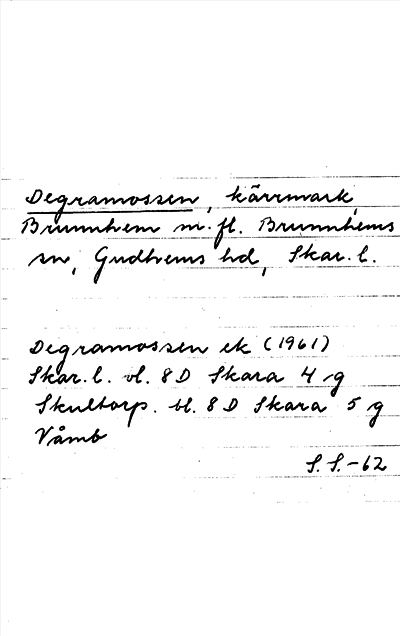 Degramossen, kärrmark,
Brunnhem m. fl. Brunnhems
sn, Gudhems hd, Skar. l.
Degramossen ek (1961)
Skar. l. bl. 8 D Skara 4 g
Skultorp. bl. 8 D Skara 5 g
Våmb
S. S. -62